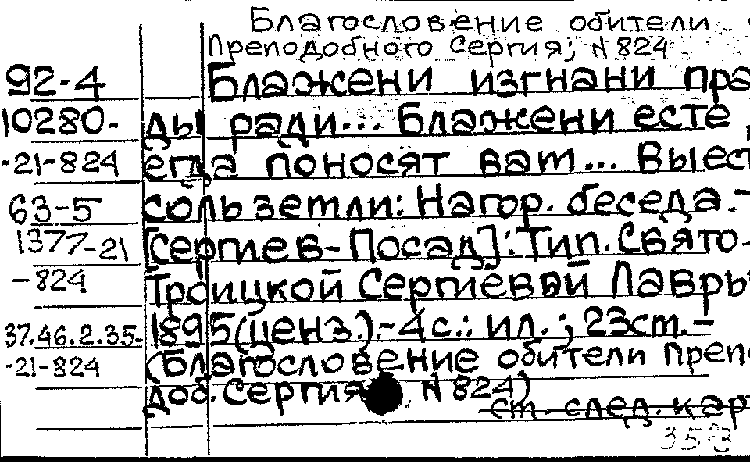 Благословение обители
Преподобного Сергия; N 824
92-4 Блажени изгнани пра
10280- ды ради... Блажени есте
-21-824 егда поносят вам... Вы ест
63-5 соль земли: Нагор. беседа.-
1377-21 [Сергиев-Посад]: Тип. Свято-
-824 Троицкой Сергиевой Лавры
37.46.2.35- 1895(ценз.).-4с.: ил.; 23см.-
-21-824 (Благословение обители Преп
доб. Сергия N 824)
см. след. кар